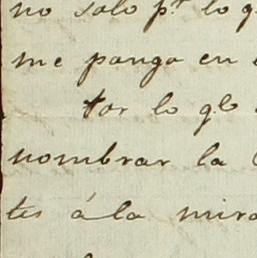 no solo pr. lo q
me ponga en
tor lo qlo
nombrar la
tes á la mira